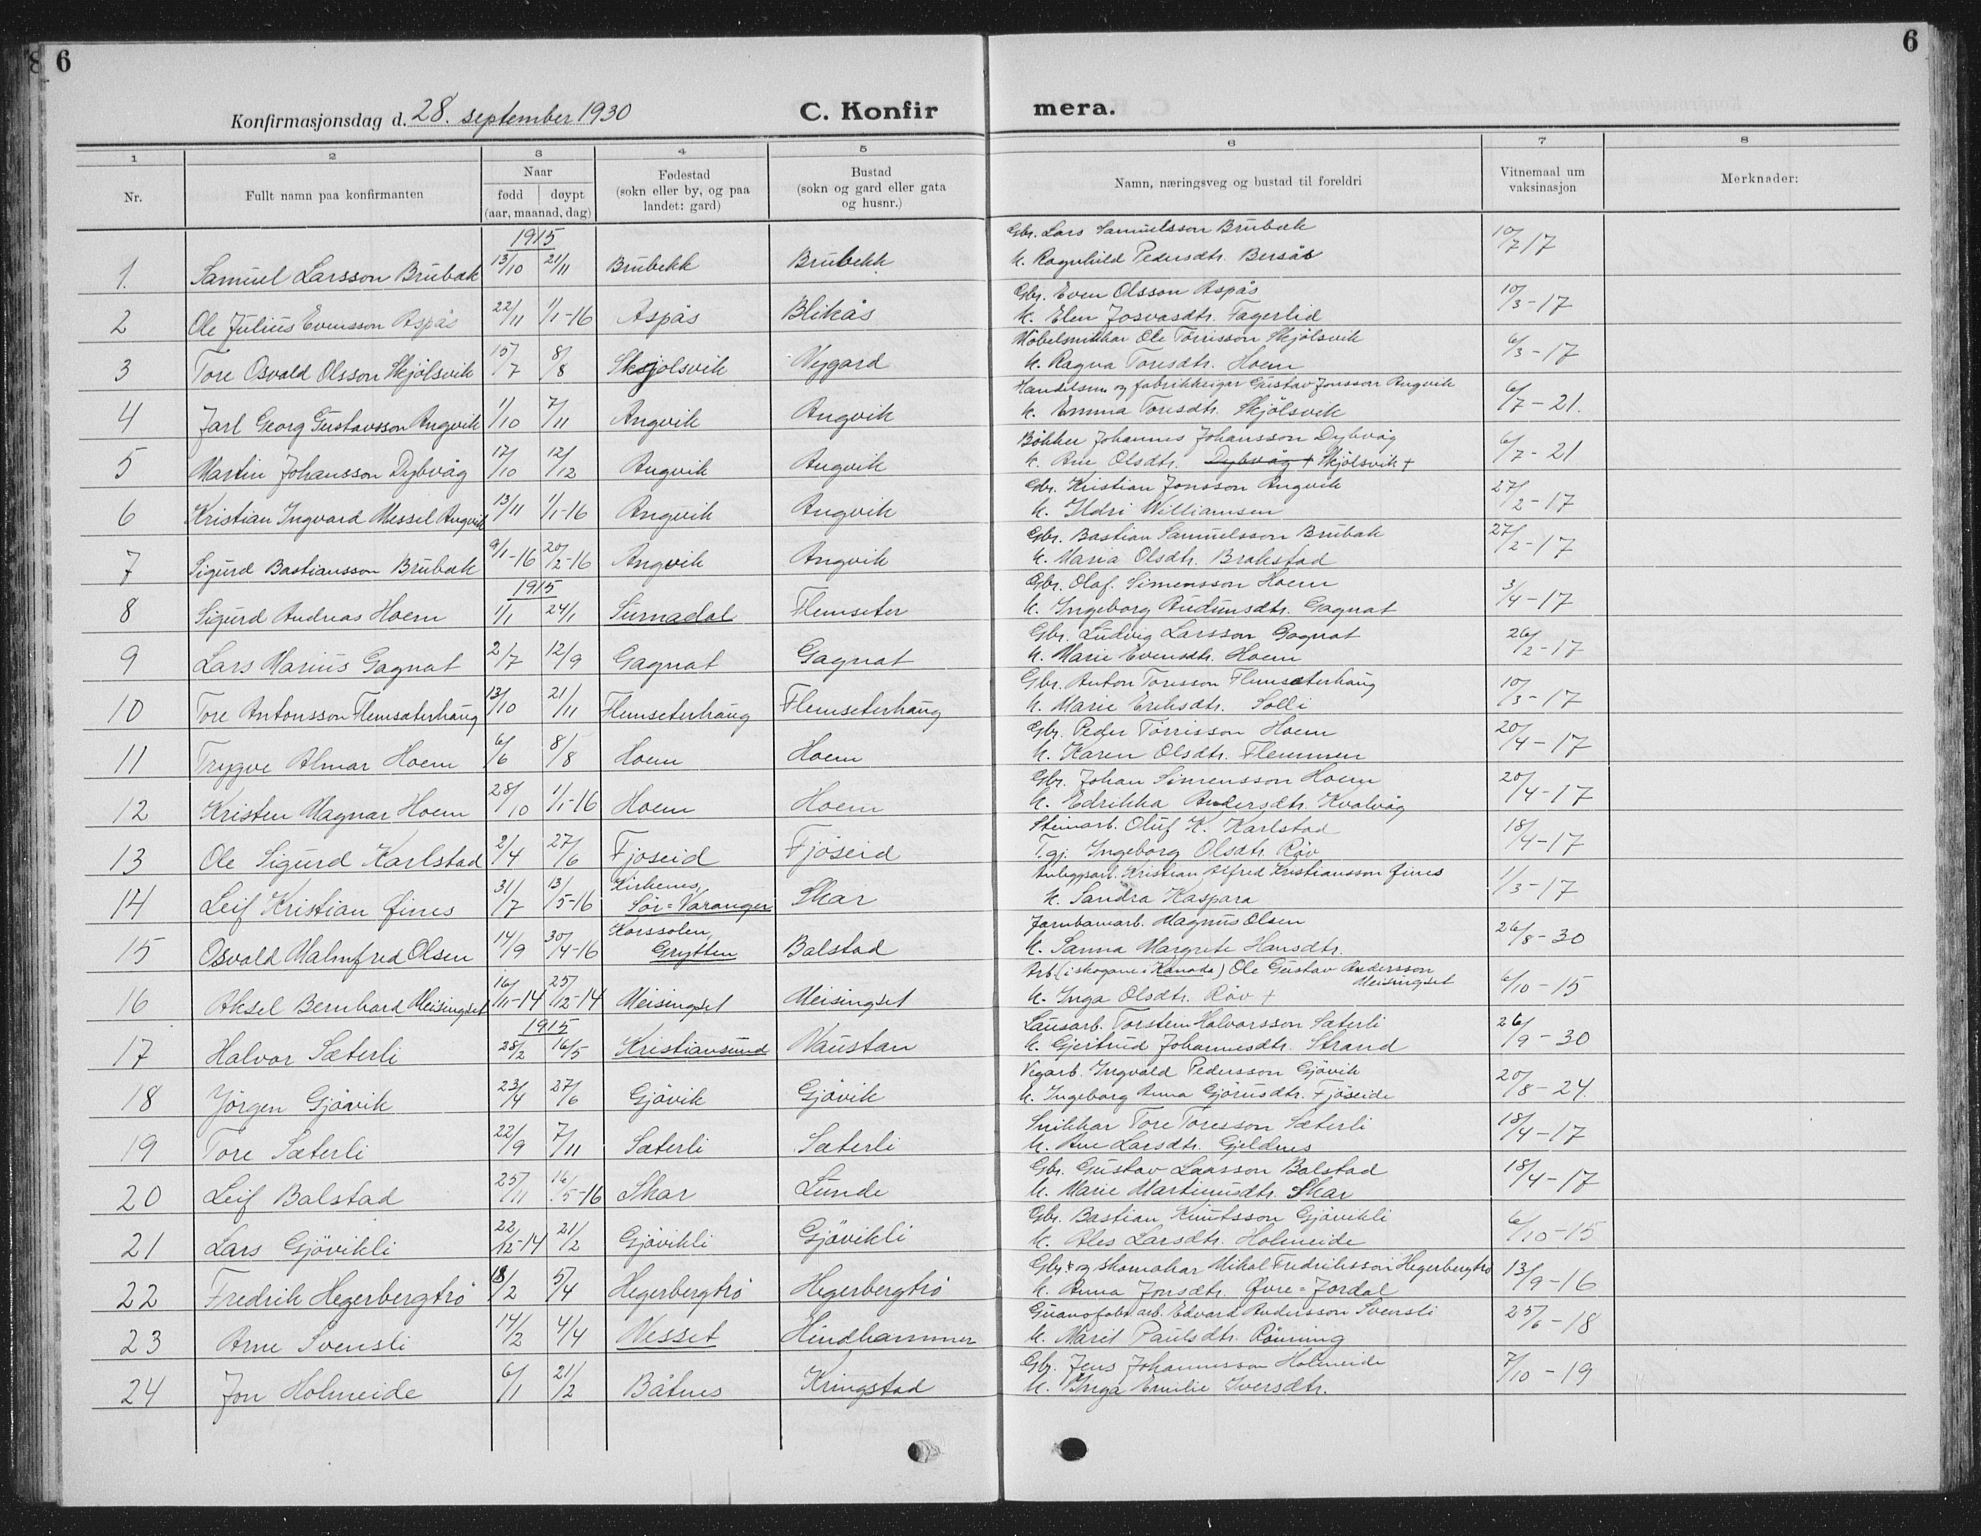 6
6
Konfirmasjonsdag d. 28. september 1930
C. Konfir
mera.
1 2 3 4 5 6 7 8
Nr. Fullt namn paa konfirmanten Naar fødd døypt (aar, maanad, dag) Fødestad (sokn eller by, og paa landet: gard) Bustad (sokn og gard eller gata og husnr.) Namn, næringsveg og bustad til foreldri Vitnemaal um vaksinasjon Merknader:
1915
Gbr. Lars Samuelsson Brubæk
1. Samuel Larsson Brubæk 13/10 21/11 Brubekk Brubekk k. Ragnhild Pedersdtr. Bersås 10/7 17
Gbr. Even Olsson Aspås
2 Ole Julius Evensson Aspås 22/11 1/1-16 Aspås Blikås k. Elen Josvasdtr. Fagerlid 10/3-17
Møbelsnikkar Ole Torrisson Skjølsvik
3 Tore Osvald Olsson Skjølsvik 15/7 8/8 Skjølsvik Nygard k. Ragna Toresdtr. Hoem 6/3-17
Handelsm. og fabrikkeigar Gustav Jonsson Angvik
4 Jarl Georg Gustavsson Angvik 1/10 7/11 Angvik Angvik k. Emma Toresdtr. Skjølsvik 6/7-21.
Bøkker Johannes Johansson Dybvåg
5 Martin Johansson Dybvåg 17/10 12/12 Angvik Angvik k. Ane Olsdtr. Dybvåg + Skjølsvik + 6/7-21
Gbr. Kristian Jonsson Angvik
6 Kristian Ingvard Messel Angvik 13/11 1/1-16 Angvik Angvik k. Ildri Williamsen 27/2-17
Gbr. Bastian Samuelsson Brubæk
7 Sigurd Bastiansson Brubæk 9/1-16 20/2-16 Angvik Angvik k. Maria Olsdtr. Brakstad 27/2-17
1915
Gbr. Olaf Simensson Hoem
8 Sigurd Andreas Hoem 1/1 24/1 Surnadal Flemseter k. Ingeborg Audunsdtr. Gagnat 3/4-17
Gbr. Ludvig Larsson Gagnat
9 Lars Marius Gagnat 2/7 12/9 Gagnat Gagnat k. Marie Evensdtr. Hoem 26/2-17
Gbr. Anton Toresson Flemsæterhaug
10 Tore Antonsson Flemsæterhaug 13/10 21/11 Flemseterhaug Flemseterhaug k. Marie Eriksdtr. Solli 10/3-17
Gbr. Peder Torrisson Hoem
11 Trygve Almar Hoem 6/6 8/8 Hoem Hoem k. Karen Olsdtr. Flemmen 20/4-17
Gbr. Johan Simensson Hoem
12 Kristen Magnar Hoem 28/10 1/1-16 Hoem Hoem k. Edrikka Andersdtr. Kvalvåg 20/4-17
Steinarb. Oluf K. Karlstad
13 Ole Sigurd Karlstad 2/4 27/6 Fjøseid Fjøseid T.gj. Ingeborg Olsdtr. Røv 18/4-17
Kirkenes, Anleggsarb. Kristian Alfred Kristiansson Øines
14 Leif Kristian Øines 31/7 13/5-16 Sør-Varanger Skar k. Sandra Kaspara 1/3-17
Korssolen, Jarnbanarb. Magnus Olsen
15 Osvald Malmfred Olsen 14/9 30/4-16 Grytten Balstad k. Sanna Margrete Hansdtr. 26/8-30
Arb. (i skogane i Kanada) Ole Gustav Andersson Meisingset
16 Aksel Bernhard Meisingset 16/11-14 25/12-14 Meisingset Meisingset k. Inga Olsdtr. Røv + 6/10-15
1915
Lausarb. Torstein Halvorsson Sæterli
17 Halvor Sæterli 28/2 16/5 Kristiansund Vaustan k. Gjertrud Johannesdtr. Strand 26/9-30
Vegarb. Ingvald Pedersson Gjøvik
18 Jørgen Gjøvik 23/4 27/6 Gjøvik Gjøvik k. Ingeborg Anna Gjørusdtr. Fjøseide 20/8-24
Snikkar Tore Toresson Sæterli
19 Tore Sæterli 22/9 7/11 Sæterli Sæterli k. Ane Larsdtr. Gjeldnes 18/4-17
Gbr. Gustav Laasson Balstad
20 Leif Balstad 25/11 16/5-16 Skar Lunde k. Marie Martinusdtr. Skar 18/4-17
Gbr. Bastian Knutsson Gjøvikli
21 Lars Gjøvikli 22/12-14 21/2 Gjøvikli Gjøvikli k. Ales Larsdtr. Holmeide 6/10-15
Gbr. og skomakar Mikal Fredriksson Hegerbergtrø
22 Fredrik Hegerbergtrø 18/2 5/4 Hegerbergtrø Hegerbergtrø k. Anna Jonsdtr. Øvre-Jordal 13/9-16
Guanofabr.arb. Edvard Andersson Svensli
23 Arne Svensli 14/2 4/4 Nesset Hindhammer k. Marit Paulsdtr. Rønning 25/6-18
Gbr. Jens Johannesson Holmeide
24 Jon Holmeide 6/1 21/2 Båtnes Kringstad k. Inga Emilie Iversdtr. 7/10-19